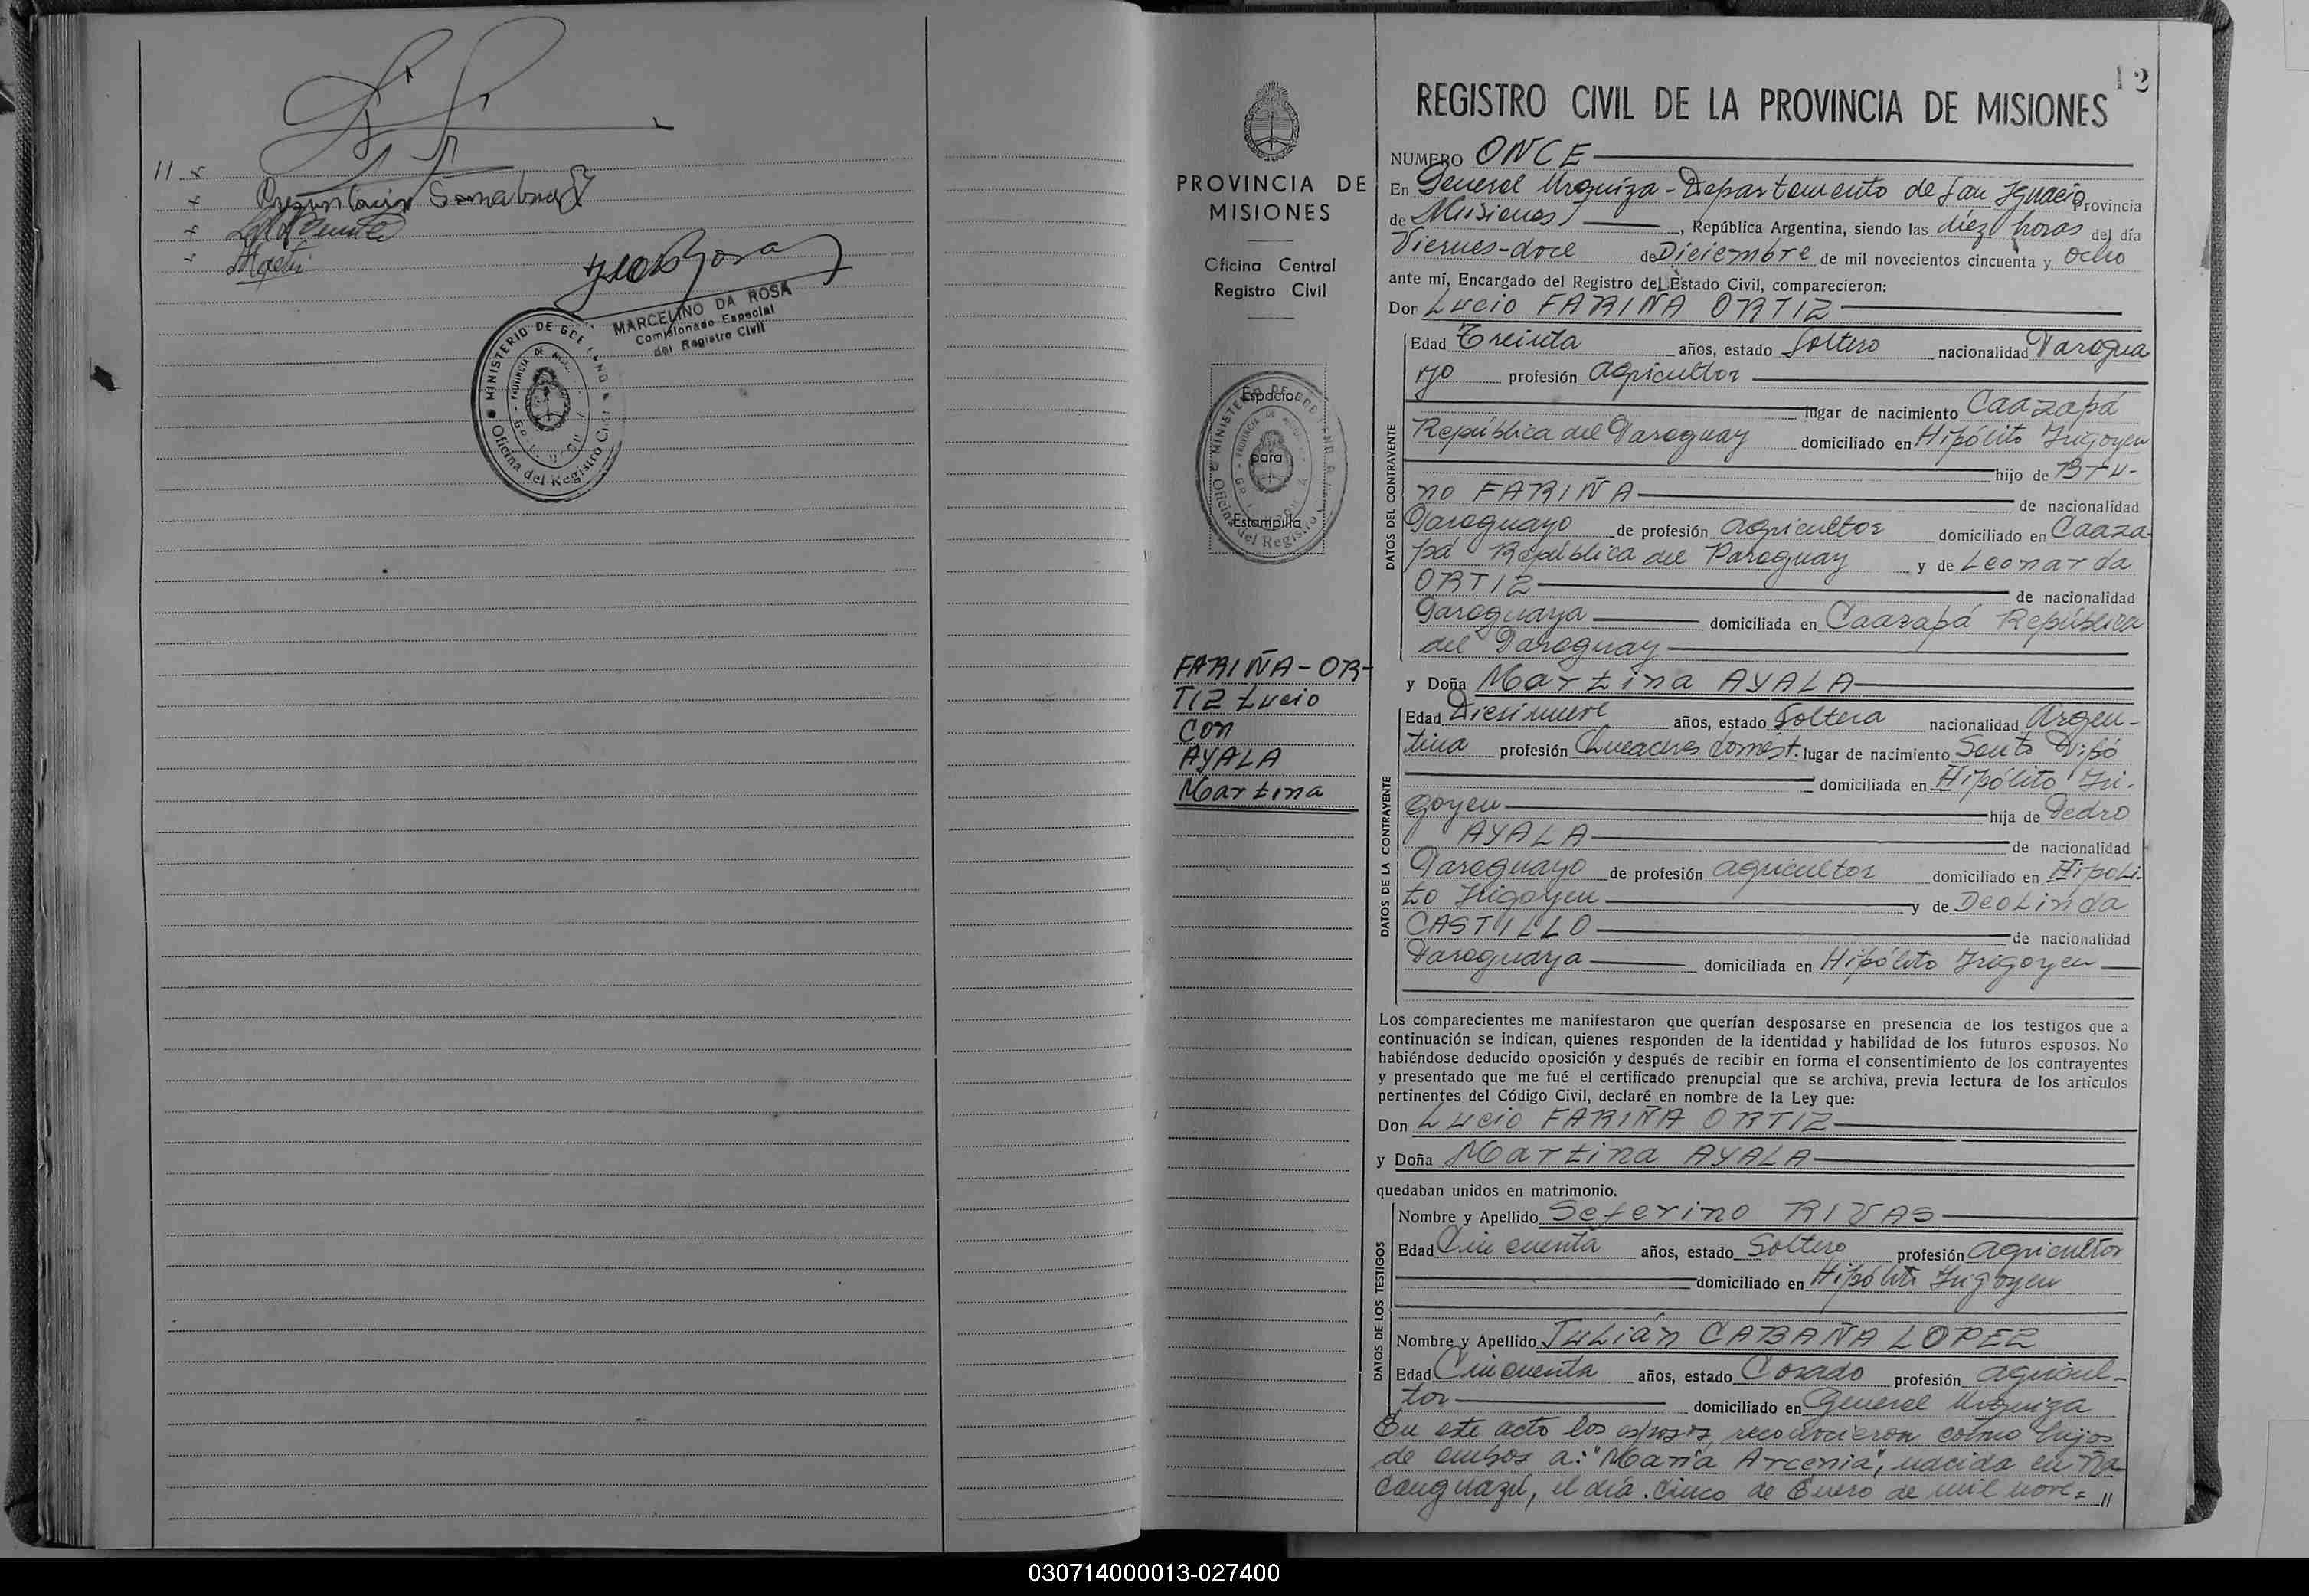 11 x
x
x
x
MARCELINO DA ROSA
Comisionado Especial
del Registro Civil
MINISTERIO DE GOB
PROVINCIA DE
Oficina del Registro Civil
PROVINCIA DE
MISIONES
Oficina Central
Registro Civil
Espacio
para
Estampilla
FARIÑA-OR-
TIZ Lucio
Con
AYALA
Martina
12
REGISTRO CIVIL DE LA PROVINCIA DE MISIONES
NUMERO ONCE
En General Urquiza - Departamento de San Ignacio Provincia
de Misiones, República Argentina, siendo las diez horas del día
Viernes-doce de Diciembre de mil novecientos cincuenta y Ocho
ante mí, Encargado del Registro del Estado Civil, comparecieron:
Don Lucio FARIÑA ORTIZ
DATOS DEL CONTRAYENTE
Edad Treinta años, estado Soltero nacionalidad Paragua
yo profesión agricultor
lugar de nacimiento Caazapá
República del Paraguay domiciliado en Hipólito Irigoyen
hijo de Bru-
no FARIÑA de nacionalidad
Paraguayo de profesión agricultor domiciliado en Caaza-
pá República del Paraguay y de Leonarda
ORTIZ de nacionalidad
Paraguaya domiciliada en Caazapá República
del Paraguay
y Doña Martina AYALA
DATOS DE LA CONTRAYENTE
Edad Diesinueve años, estado Soltera nacionalidad Argen-
tina profesión Queaceres domest. lugar de nacimiento Santo Pipó
domiciliada en Hipólito Iri-
goyen hija de Pedro
AYALA de nacionalidad
Paraguayo de profesión agricultor domiciliado en Hipóli-
to Irigoyen y de Deolinda
CASTILLO de nacionalidad
Paraguaya domiciliada en Hipólito Irigoyen
Los comparecientes me manifestaron que querían desposarse en presencia de los testigos que a
continuación se indican, quienes responden de la identidad y habilidad de los futuros esposos. No
habiéndose deducido oposición y después de recibir en forma el consentimiento de los contrayentes
y presentado que me fué el certificado prenupcial que se archiva, previa lectura de los artículos
pertinentes del Código Civil, declaré en nombre de la Ley que:
Don Lucio FARIÑA ORTIZ
y Doña Martina AYALA
quedaban unidos en matrimonio.
DATOS DE LOS TESTIGOS
Nombre y Apellido Seferino RIVAS
Edad Cincuenta años, estado Soltero profesión agricultor
domiciliado en Hipólito Irigoyen
Nombre y Apellido Julián CABAÑA LOPEZ
Edad Cincuenta años, estado Casado profesión agricul-
tor domiciliado en General Urquiza
En este acto los esposos reconocieron como hijos
de ambos a: "María Arcenia", nacida en Ña
canguazú, el día cinco de Enero de mil nove= //
030714000013-027400